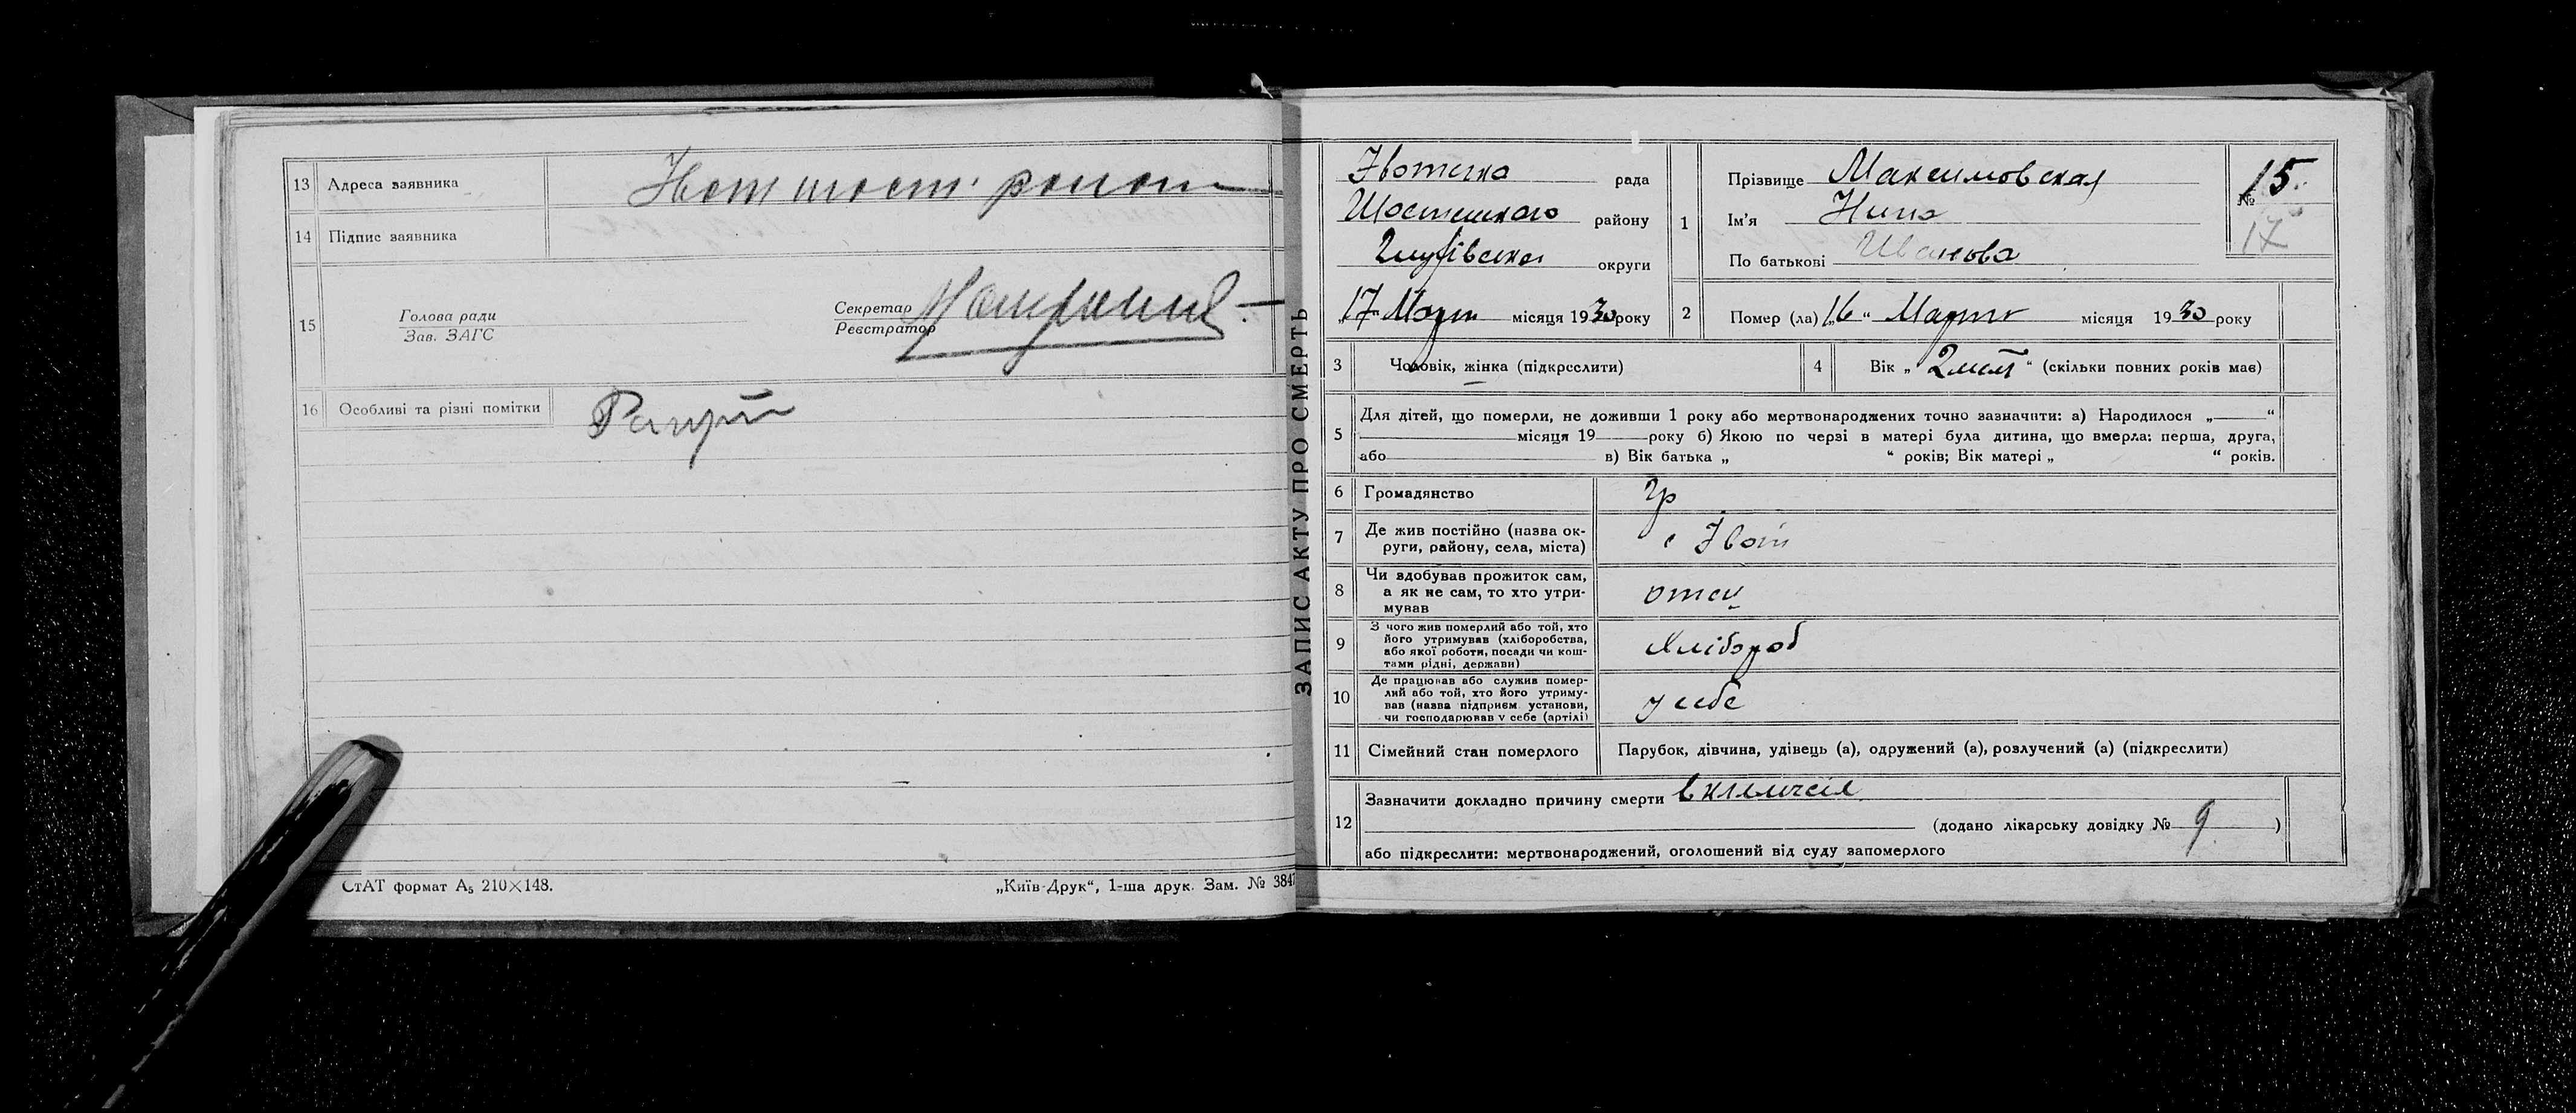 13 Адреса заявника
14 Підпис заявника
15 Голова ради
Зав. ЗАГС
Секретар
Реєстратор
16 Особливі та різні помітки
СтАТ формат А5 210×148.
„Київ-Друк“, 1-ша друк. Зам. № 3847
ЗАПИС АКТУ ПРО СМЕРТЬ
рада
району
округи
„17“ Март місяця 1930 року
1 Прізвище Максимовская
Ім'я Нина
По батькові Иванова
№ 15.
17
2 Помер (ла) „16“ Марта місяця 1930 року
3 Чоловік, жінка (підкреслити)
4 Вік „ 2 “ (скільки повних років має)
5 Для дітей, що померли, не доживши 1 року або мертвонароджених точно зазначити: а) Народилося „ “
місяця 19 року б) Якою по черзі в матері була дитина, що вмерла: перша, друга,
або в) Вік батька „ “ років; Вік матері „ “ років.
6 Громадянство гр
7 Де жив постійно (назва ок-
руги, району, села, міста) с Івот
8 Чи здобував прожиток сам,
а як не сам, то хто утри-
мував отец
9 З чого жив померлий або той, хто
його утримував (хліборобства,
або якої роботи, посади чи кош-
тами рідні, держави) Хлібороб
10 Де працював або служив помер-
лий або той, хто його утриму-
вав (назва підприєм. установи,
чи господарював у себе (артілі) у себе
11 Сімейний стан померлого Парубок, дівчина, удівець (а), одружений (а), розлучений (а) (підкреслити)
12 Зазначити докладно причину смерти
(додано лікарську довідку № 9 )
або підкреслити: мертвонароджений, оголошений від суду запомерлого